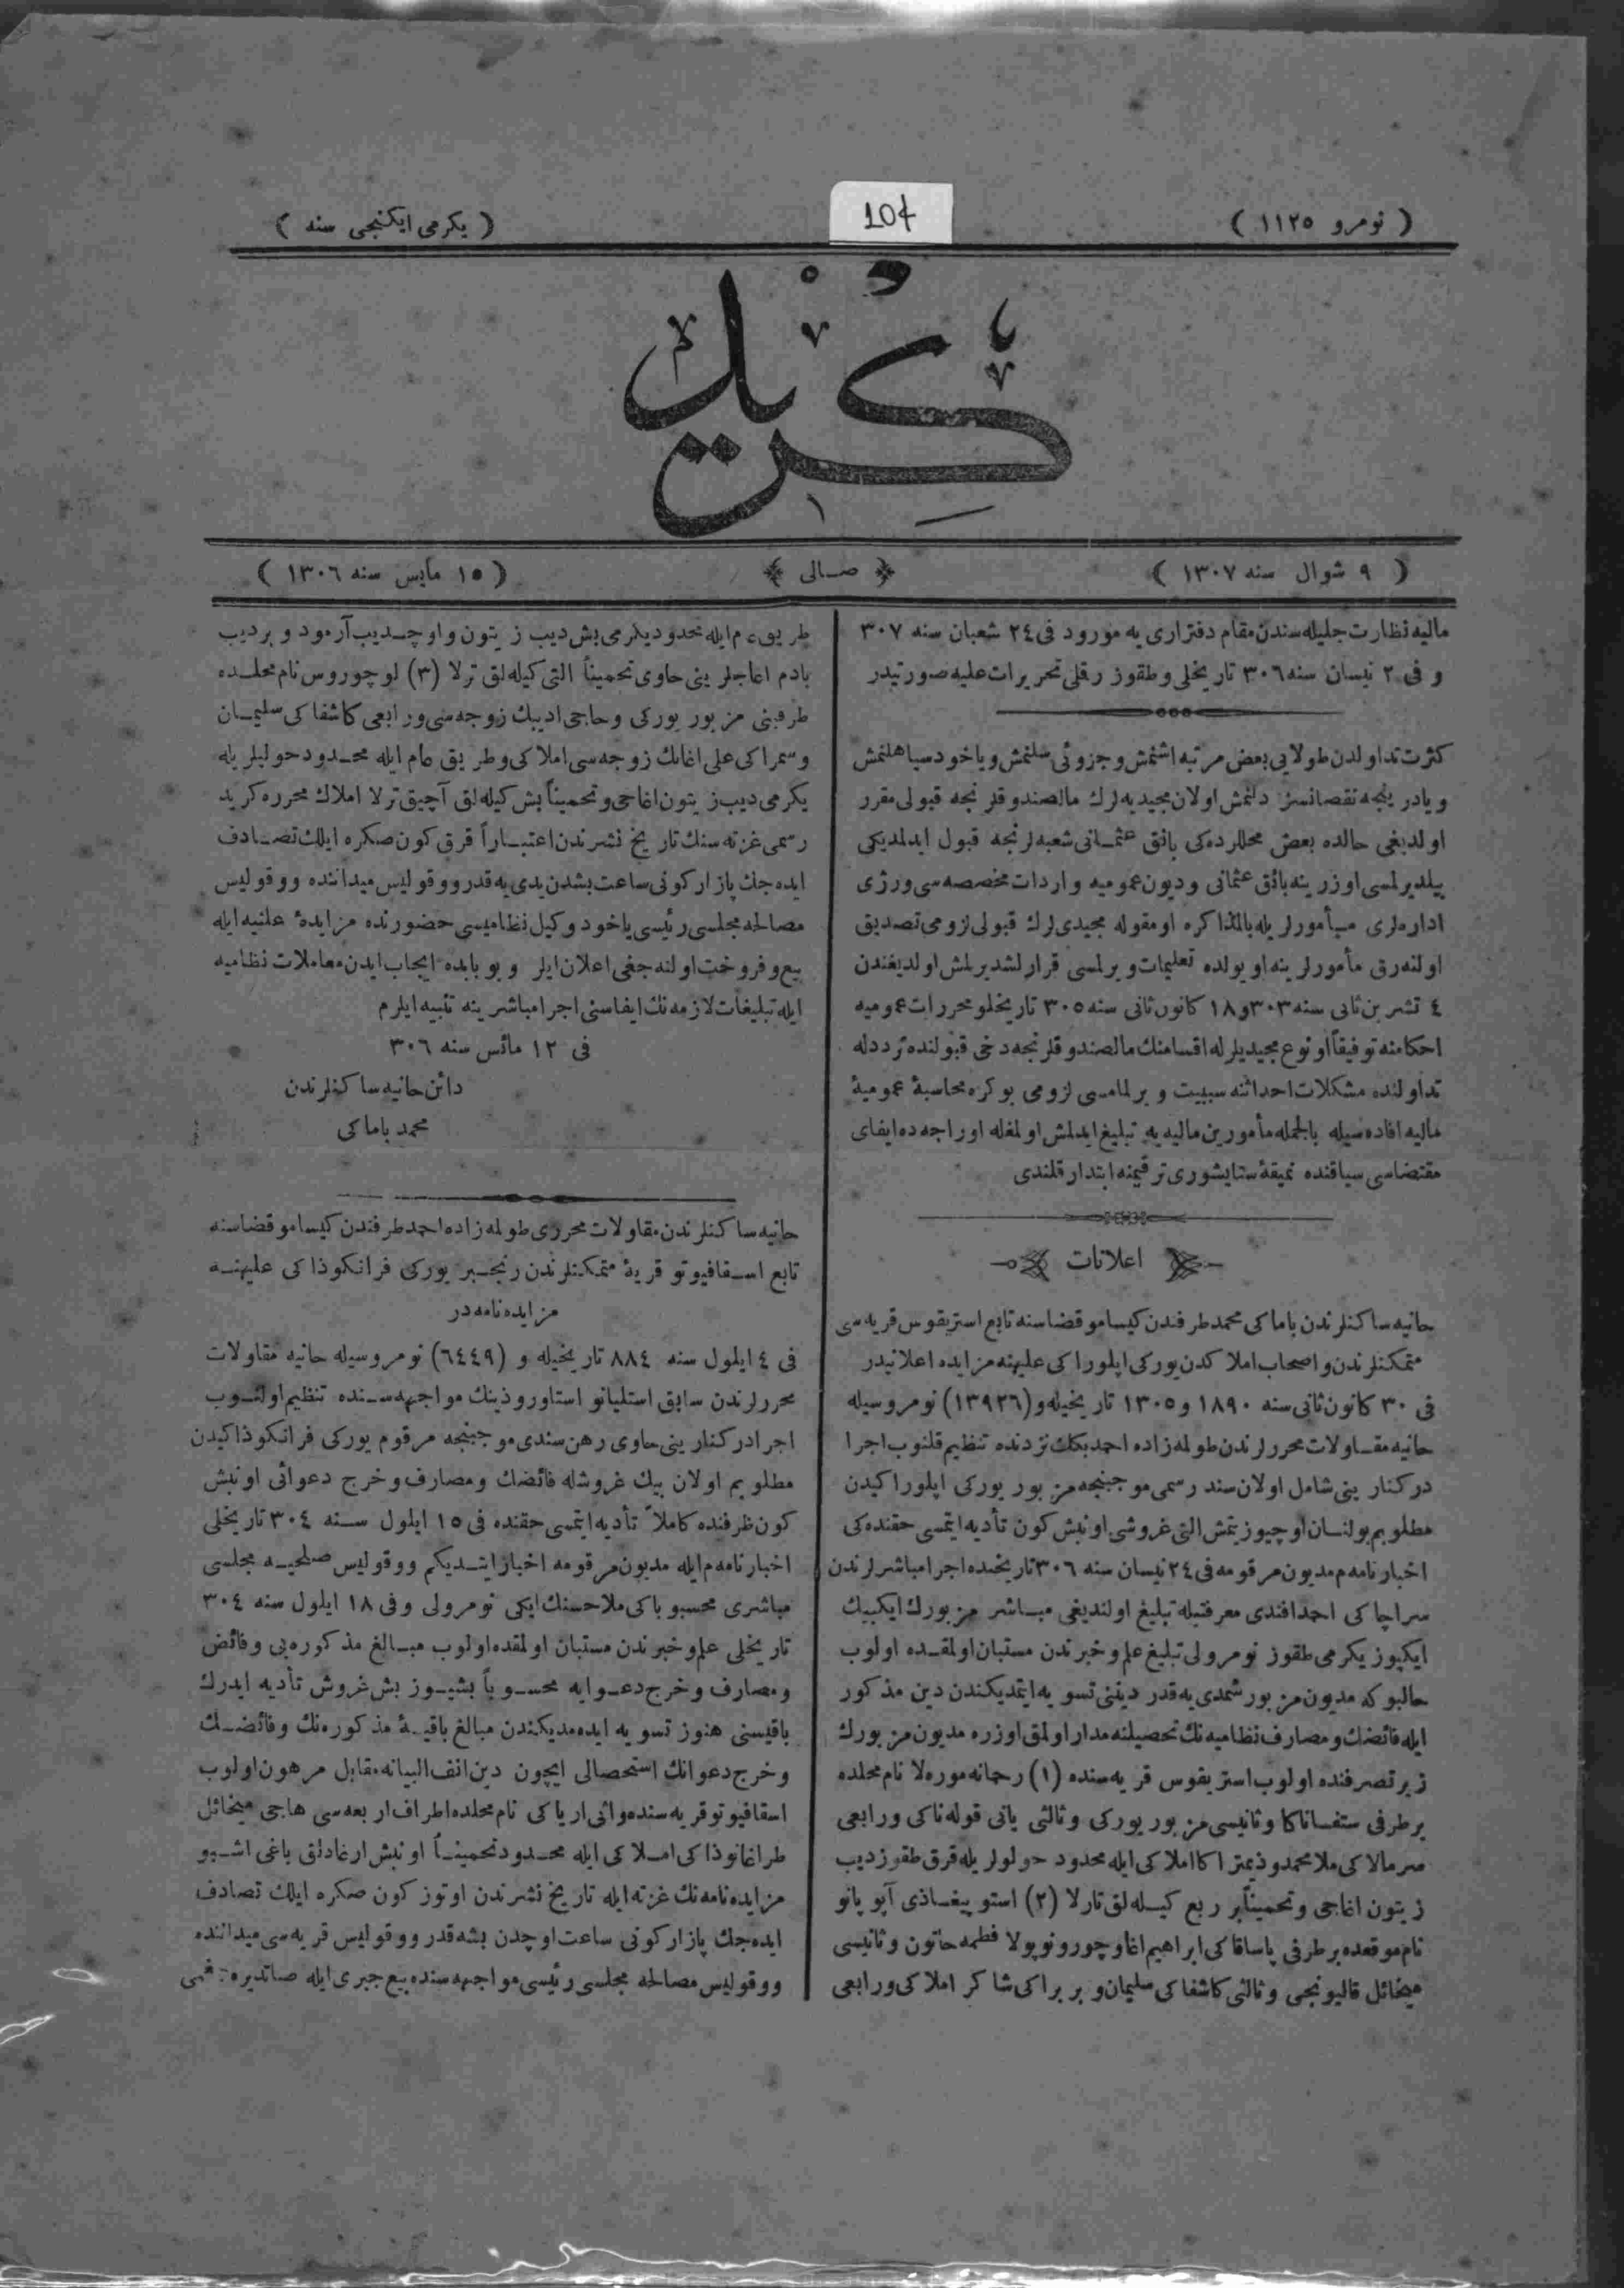 ( نومرو ١١٢٥ )
104
( يكرمی ايكنجی سنه )
كريد
( ٩ شوال سنه ١٣٠٧ )
صالی
( ١٥ مايس سنه ١٣٠٦ )
ماليه نظارت جليله سندن مقام دفتراری يه مورود فی ٢٤ شعبان سنه ٣٠٧
و فی ٢ نيسان سنه ٣٠٦ تاريخلی وطقوز رقلی تحريرات عليه صورتيدر
كثرت تداولدن طولايی بعض مرتبه اشنمش وجزوئی سلنمش وياخود سياهلنمش
ويادر ينجه نقصانسز دلنمش اولان مجيديه لرك مالصندوقلرنجه قبولی مقرر
اولديغی حالده بعض محللرده كی بانق عثمانی شعبه لرنجه قبول ايدلمديكی
بيلديرلمسی اوزرينه بانق عثمانی وديون عموميه واردات مخصصه سی ورژی
اداره لری مأمورلريله بالمذاكره اومقوله مجيدی لرك قبولی لزومی تصديق
اولنه رق مأمورلرينه اويولده تعليمات ويرلمسی قرارلشديرلمش اولديغندن
٤ تشرين ثانی سنه ٣٠٣ و ١٨ كانون ثانی سنه ٣٠٥ تاريخلو محررات عموميه
احكامنه توفيقاً اونوع مجيديلرله اقسامنك مالصندوقلرنجه دخی قبولنده تردده
تداولنده مشكلات احداثنه سببيت ويرلمامسی لزومی بوكره محاسبۀ عموميۀ
ماليه افاده سيله بالجمله مأمورين ماليه يه تبليغ ايدلمش اولمغله اوراجه ده ايفای
مقتضاسی سياقنده نميقۀ ستايشوری ترقيمنه ابتدار قلندی
اعلانات
حانيه ساكنلرندن باماكی محمد طرفندن كيسامو قضاسنه تابع استريقوس قريه سی
متمكنلرندن واصحاب املاكدن يوركی اپلوراكی عليهنه مزايده اعلانيدر
فی ٣٠ كانون ثانی سنه ١٨٩٠ و ١٣٠٥ تاريخيله و (١٣٩٢٦) نومروسيله
حانيه مقاولات محررلرندن طولمه زاده احمد بكك نزدنده تنظيم قلنوب اجرا
دركنارينی شامل اولان سند رسمی موجبنجه مزبور يوركی اپلوراكيدن
مطلوبم بولنان اوچيوز يتمش التی غروشی اونبش كون تأديه ايتمسی حقنده كی
اخبارنامه م مديون مرقومه فی ٢٤ نيسان سنه ٣٠٦ تاريخنده اجرا مباشرلرندن
سراچاكی احمد افندی معرفتيله تبليغ اولنديغی مباشر مزبورك ايكيبيك
ايكيوز يكرمی طقوز نومرولی تبليغ علم وخبرندن مستبان اولمقده اولوب
حالبوكه مديون مزبور شمدی يه قدر دينی تسويه ايتمديكندن دين مذكور
ايله فائضك ومصارف نظاميه نك تحصيلنه مدار اولمق اوزره مديون مزبورك
زير تصرفنده اولوب استريقوس قريه سنده (١) رحمانه موره لا نام محلده
برطرفی ستفاناكا وثانيسی مزبور يوركی وثالثی يانی قوله ناكی ورابعی
سرمالاكی ملا محمد وذيمتراكا املاكی ايله محدود حولولريله قرق طقوز ديب
زيتون اغاجی وتحميناً بر ربع كيله لق تارلا (٢) استو پيغاذی آپو پانو
نام موقعده برطرفی پاساقاكی ابراهيم اغا وچورونوپولا فطمه خاتون وثانيسی
ميخائل قاليونجی وثالثی كاشفاكی سليمان و بربراكی شاكر املاكی ورابعی
طريق عام ايله محدود يكرمی بش ديب زيتون واوچ ديب آرمود و بر ديب
بادم اغاجلرينی حاوی تحميناً التی كيله لق ترلا (٣) لوچوروس نام محلده
طرفينی مزبور يوركی وحاجی اديبك زوجه سی ورابعی كاشفاكی سليمان
وسمراكی علی اغانك زوجه سی املاكی وطريق عام ايله محدود حوليلريله
يكرمی ديب زيتون اغاجی وتحميناً بش كيله لق آچيق ترلا املاك محرره كريد
رسمی غزته سنك تاريخ نشرندن اعتباراً قرق كون صكره ايلك تصادف
ايده جك پازار كونی ساعت بشدن يدی يه قدر ووقوليس ميداننده ووقوليس
مصالحه مجلسی رئيسی ياخود وكيل نظاميسی حضورنده مزايدۀ علنيه ايله
بيع وفروخت اولنه جغی اعلان ايلر وبوبابده ايجاب ايدن معاملات نظاميه
ايله تبليغات لازمه نك ايفاسنی اجرا مباشرينه تنبيه ايلرم
فی ١٢ مائس سنه ٣٠٦
دائن حانيه ساكنلرندن
محمد باماكی
حانيه ساكنلرندن مقاولات محرری طولمه زاده احمد طرفندن كيسامو قضاسنه
تابع اسقافيوتو قريۀ متمكنلرندن رنجبر يوركی فرانكوذاكی عليهنه
مزايده نامه در
فی ٤ ايلول سنه ٨٨٤ تاريخيله و (٦٤٤٩) نومروسيله حانيه مقاولات
محررلرندن سابق استليانو استاوروذينك مواجهه سنده تنظيم اولنوب
اجرا دركنارينی حاوی رهن سندی موجبنجه مرقوم يوركی فرانكوذاكيدن
مطلوبم اولان بيك غروشله فائضك ومصارف وخرج دعوائی اونبش
كون ظرفنده كاملاً تأديه ايتمسی حقنده فی ١٥ ايلول سنه ٣٠٤ تاريخلی
اخبارنامه م ايله مديون مرقومه اخبار ايتديكم ووقوليس صلحيه مجلسی
مباشری محسبو باكی ملا حسنك ايكی نومرولی وفی ١٨ ايلول سنه ٣٠٤
تاريخلی علم وخبرندن مستبان اولمقده اولوب مبالغ مذكوره يی وفائض
ومصارف وخرج دعوايه محسوباً بشيوز بش غروش تأديه ايدرك
باقيسنی هنوز تسويه ايده مديكندن مبالغ باقيۀ مذكوره نك وفائضك
وخرج دعوانك استحصالی ايچون دين انف البيانه مقابل مرهون اولوب
اسقافيوتو قريه سنده واثی ارياكی نام محلده اطراف اربعه سی هاجی ميخائل
طراغانوذاكی املاكی ايله محدود تحميناً اونبش ارغادلق باغی اشبو
مزايده نامه نك غزته ايله تاريخ نشرندن اوتوز كون صكره ايلك تصادف
ايده جك پازار كونی ساعت اوچدن بشه قدر ووقوليس قريه سی ميداننده
ووقوليس مصالحه مجلسی رئيسی مواجهه سنده بيع جبری ايله صاتديره جغمی